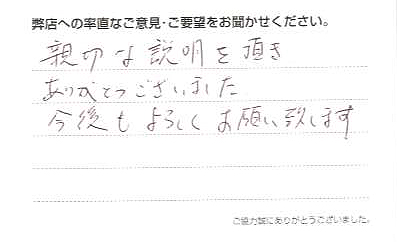 弊店への率直なご意見・ご要望をお聞かせください。
親切な説明を頂き
ありがとうございました
今後もよろしくお願い致します
ご協力誠にありがとうございました。